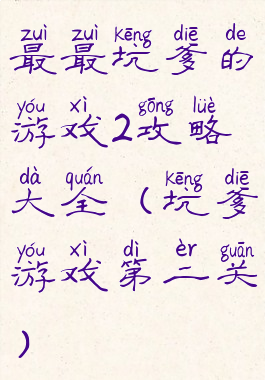 zuì zuì kēng diē de
最最坑爹的
yóu xì gōng lüè
游戏2攻略
dà quán kēng diē
大全（坑爹
yóu xì dì èr guān
游戏第二关
）